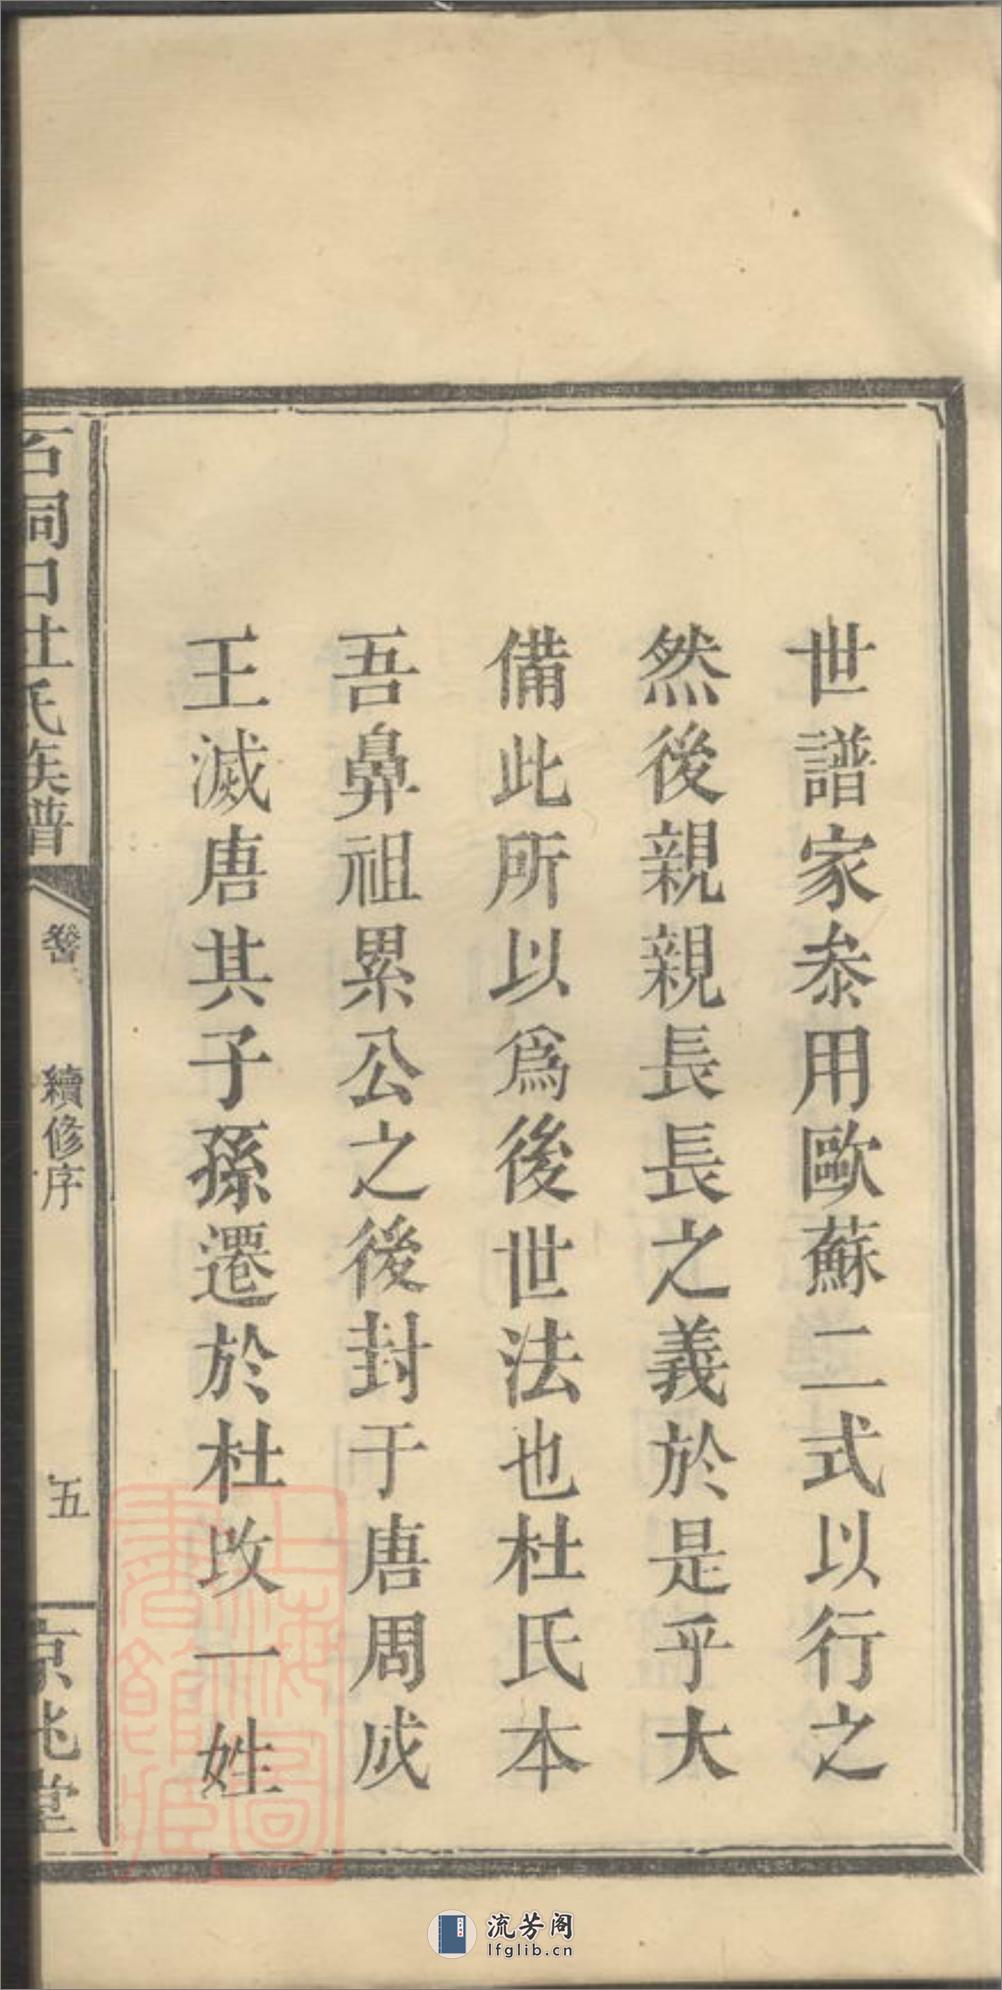 世譜家叅用歐蘇二式以行之
然後親親長長之義於是乎大
備此所以爲後世法也杜氏本
吾鼻祖累公之後封于唐周成
王滅唐其子孫遷於杜改一姓
石洞口杜氏族譜
卷首
續修序
五
京兆堂
上海圖
書館藏
流芳阁
lfglib.cn